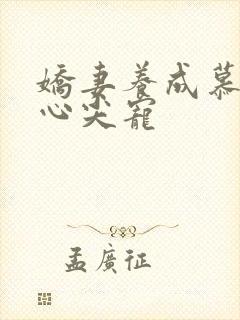 嬌妻養成慕
心尖寵
孟廣征